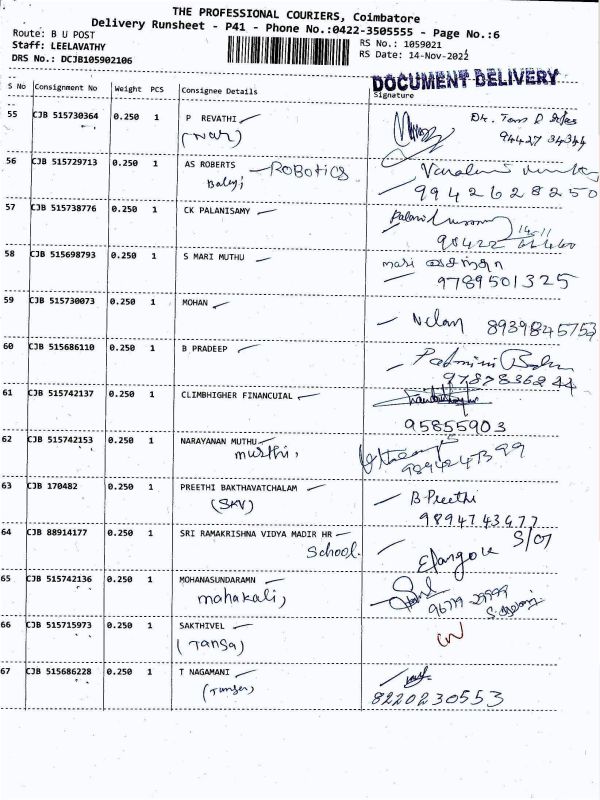 THE PROFESSIONAL COURIERS, Coimbatore
Delivery Runsheet - P41 - Phone No.:0422-3505555 - Page No.:6
Route: B U POST
RS No.: 1059021
Staff: LEELAVATHY
RS Date: 14-Nov-2022
DRS No.: DCJB105902106
DOCUMENT DELIVERY
S No Consignment No Weight PCS Consignee Details Signature
55 CJB 515730364 0.250 1 P REVATHI
94427 34344
56 CJB 515729713 0.250 1 AS ROBERTS ROBOTICS
9942628250
57 CJB 515738776 0.250 1 CK PALANISAMY
14-11
58 CJB 515698793 0.250 1 S MARI MUTHU mari
9789501325
59 CJB 515730073 0.250 1 MOHAN
8939845753
60 CJB 515686110 0.250 1 B PRADEEP Padmini
9787836244
61 CJB 515742137 0.250 1 CLIMBHIGHER FINANCUIAL
95855903
62 CJB 515742153 0.250 1 NARAYANAN MUTHU
murthi,
63 CJB 170482 0.250 1 PREETHI BAKTHAVATCHALAM B. Preethi
(SKV)
64 CJB 88914177 0.250 1 SRI RAMAKRISHNA VIDYA MADIR HR S/O
School.
65 CJB 515742136 0.250 1 MOHANASUNDARAMN
mahakali,
66 CJB 515715973 0.250 1 SAKTHIVEL
(Tansa)
67 CJB 515686228 0.250 1 T NAGAMANI
8220230553